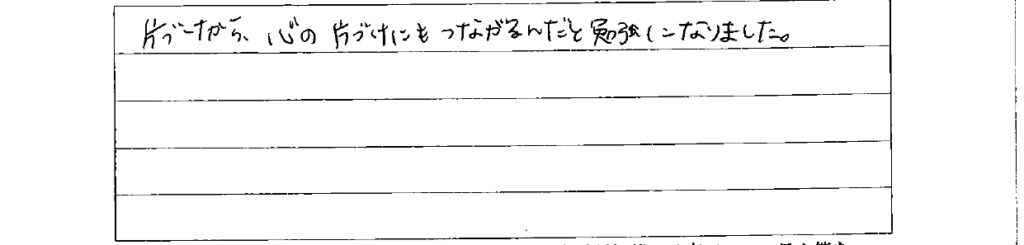 片づけから、心の片づけにもつながるんだと勉強になりました。